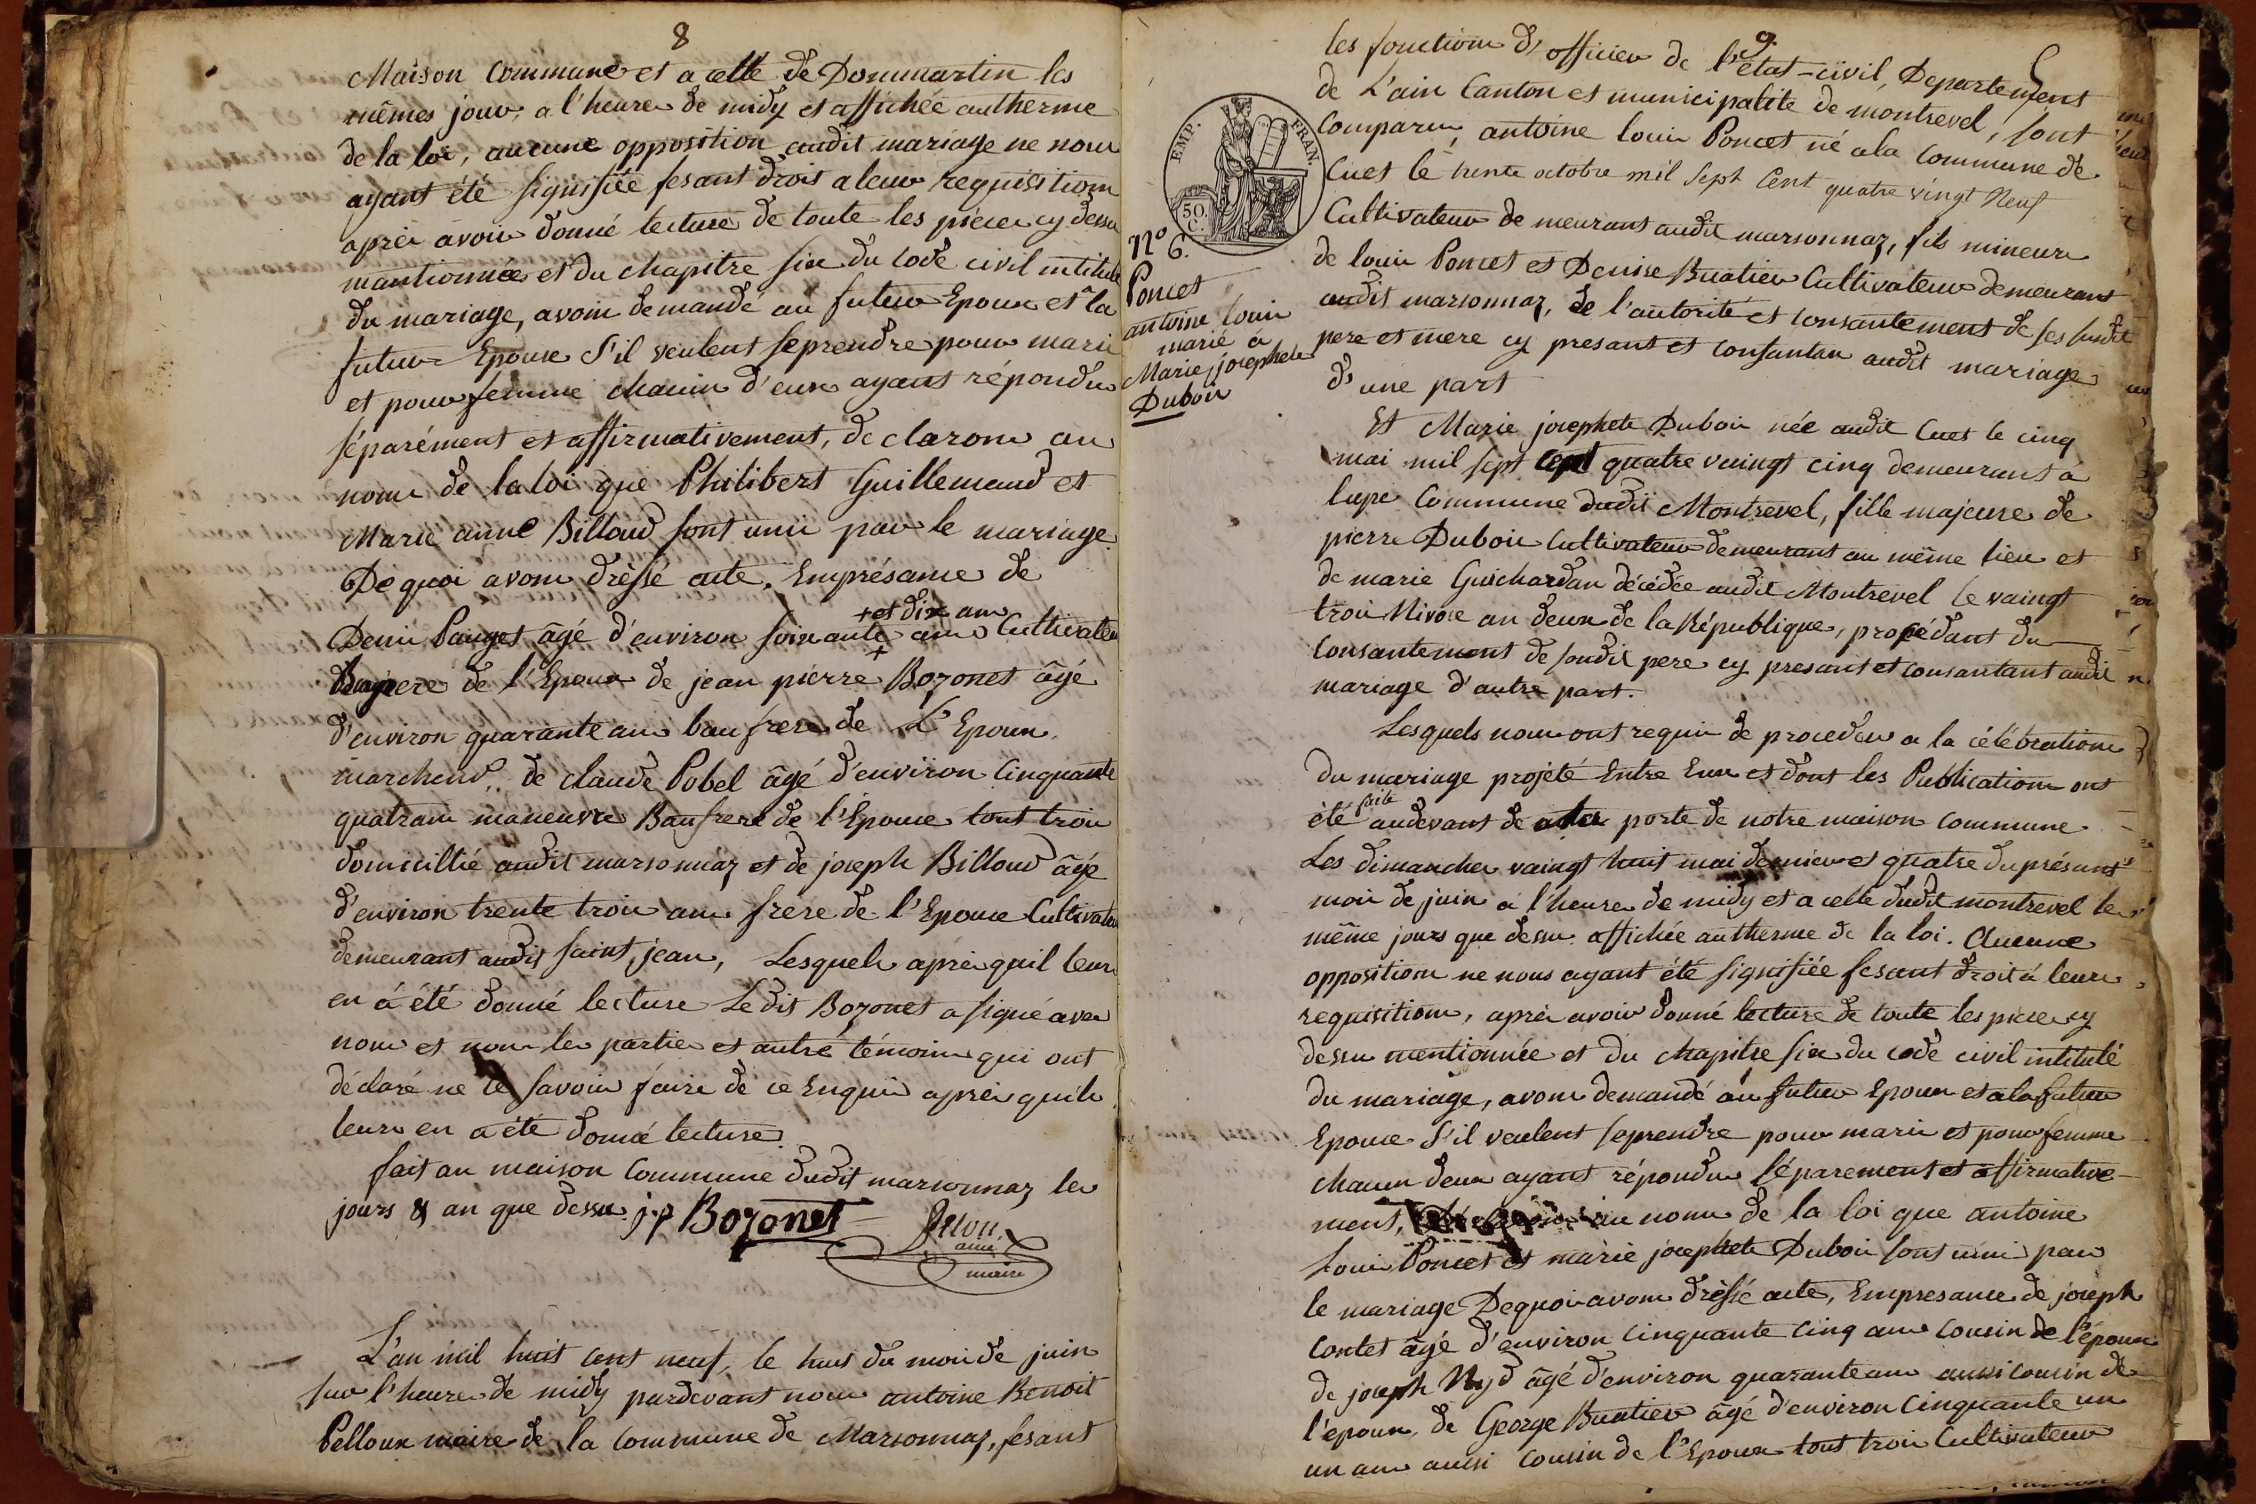 8
Maison Commune et a celle de Dommartin les
mêmes jour, a l'heure de midy et affichée autherme
de la loi, aucune opposition audit mariage ne nous
ayant été signifiée fesant droit a leur requisition
après avoir donné lecture de toute les pieces cy dessu
mantionnée et du chapitre six du code civil intitulé
du mariage, avons demandé au futur Epoux et a la
future Epouse s'il veulent se prendre pour marie
et pour femme chacun d'eux ayant répondu
séparément et affirmativement, declarons au
nom de la loi que Philibert Guillemaud et
Marie anne Billoud sont unis par le mariage
De quoi avons drèssé acte. Emprésance de
+ et dix ans
Denis Pauget âgé d'environ soixante + ans Cultivateur
Beaupere de l'Epoux de jean pierre Bozonet âgé
d'environ quarante ans baufrere de L'Epoux
marchand, de claude Pobel âgé d'environ Cinquante
quatrans maneuvre Baufrere de l'Epouse tout trois
domicillié audit marsonnaz et de joseph Billoud âgé
d'environ trente trois ans frere de l'Epouse Cultivateur
demeurant audit saint jean, Lesquels après quil leur
en á été donné lecture Ledit Bozonet a signé avec
nous et non les parties et autre témoins qui ont
déclaré ne le savoir faire de ce Enquis après quils
leurs en a été donné lecture.
fait au maison Commune dudit marsonnaz les
jours & an que dessu. j.p Bozonet
maire
L'an mil huit cent neuf, le huit du mois de juin
sur l'heure de midy pardevant nous antoine Benoit
Pelloux maire de la Commune de Marsonnaz, fesant
9.
les fonctions d'officier de l'état-civil, Departement
de L'ain Canton et municipalité de montrevel, sont
Comparu, antoine louis Poncet né a la Commune de
Cuet le trente octobre mil sept Cent quatre vingt Neuf
Cultivateur demeurant audit marsonnaz, fils mineur
de louis Poncet et Denise Buatier Cultivateur demeurant
audit marsonnaz, de l'autorité et consantement de ses susdit
pere et mere cy presant et consantan audit mariage
d'une part
EMP. FRAN.
50. C.
N° 6.
Poncet
antoine louis
marié à
Marie josephete
Dubois
Et Marie josephete Dubois née audit Cuet le cinq
mai mil sept cent quatre vaingt cinq demeurant à
lupe Commune dudit Montrevel, fille majeure de
pierre Dubois Cultivateur demeurant au même lieu et
de marie Guichardan décédée audit Montrevel le vaingt
trois Nivose an deux de la République, procédant du
Consantement de sondit pere cy presant et consantant audit
mariage d'autre part.
Lesquels nous ont requis de proceder a la célébration
du mariage projeté Entre Eux et dont les Publication ont
été faite audevant de la porte de notre maison commune
Les dimanches vaingt huit mai dernier et quatre du présent
mois de juin a l'heure de midy et a celle dudit montrevel les
même jours que dessu affichée autherme de la loi. Aucune
opposition ne nous ayant été signifiée fesant droit à leurs
requisition, après avoir donné lecture de toute les pieces cy
dessu mentionnée et du chapitre six du code civil intitulé
du mariage, avons demandé au futur Epoux et a la future
Epouse s'il veulent se prendre pour marie et pour femme
chacun deux ayant répondu séparement et affirmative-
ment, au nom de la loi que antoine
Louis Poncet et marie josephete Dubois sont unis par
le mariage Dequoi avons drèssé acte, Empresance de joseph
Contet âgé d'environ cinquante cinq ans cousin de l'époux
de joseph âgé d'environ quarante ans aussi cousin de
l'époux, de George Buatier âgé d'environ Cinquante un
un ans aussi Cousin de l'Epoux tout trois Cultivateur